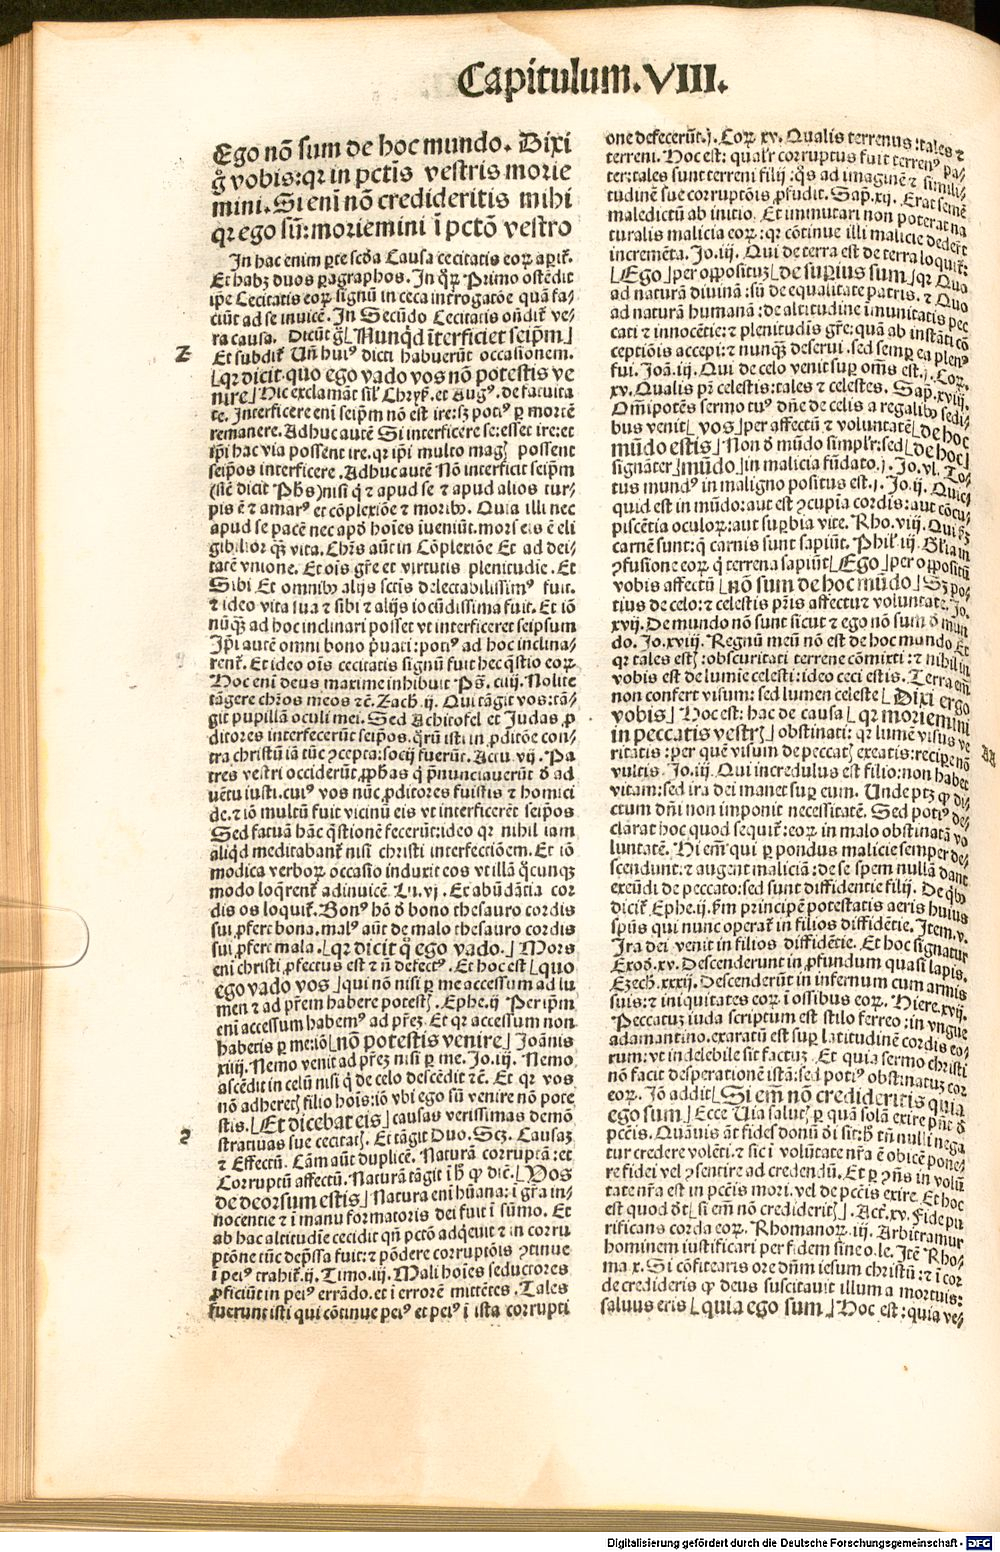 Capitulum.VIII.
Ego nō sum de hoc mundo. Dixi
g̊ vobis:qꝛ in pctis vestris morie
mini. Si eni nō credideritis mihi
qꝛ ego sū:moriemini ī pctō vestro
In hac enim ꝑte scd̄a Causa cecitatis eoꝝ aꝑit̄.
Et habꝫ duos ꝑagraphos. In q̄ꝝ Primo ostēdit
ip̄e Cecitatis eoꝝ signū in ceca intrrogatōe quā fa⸗
ciūt ad se inuicē. In Secūdo Cecitatis oñdit̄ ve⸗
ra causa. Dicūt g̊ ⌊Nunq̇d īterficiet seip̄m⌋
Z Et subdit̄ Uñ huiꝰ dicti habuerūt occasionem.
⌊qꝛ dicit quo ego vado vos nō potestis ve
nire⌋ Hic exclamāt sil̄ Chrys̄. et Augꝰ. de fatuita
te. Interficere eni seip̄m nō est ire:sꝫ potiꝰ ꝑ mortē
remanere. Adhuc autē Si interficere se:esset ire:et
ip̄i hac via possent ire.qꝛ ip̄i multo magꝭ possent
seip̄os interficere. Adhuc autē Nō interficit seip̄m
(sic̄ dicit Ph̄s) nisi q̇ ⁊ apud se ⁊ apud alios tur⸗
pis ē ⁊ amarꝰ et cōplexiōe ⁊ moribꝰ. Quia illi nec
apud se pacē nec apd̄ hoīes iueniūt.mors eis ē eli
gibilior q̄ꝫ vita. Chr̄s aūt in Cōplexiōe Et ad dei⸗
tatē vnione. Et oīs gr̄e et virtutis plenitudie. Et
Sibi Et omnibꝰ alijs sctis delectabilissimꝰ fuit.
⁊ ideo vita sua ⁊ sibi ⁊ alijs iocūdissima fuit. Et iō
nūq̄ꝫ ad hoc inclinari posset vt interficeret seipsum
Ip̄i autē omni bono p̄uati:potiꝰ ad hoc inclina⸗
rent̄. Et ideo oīs cecitatis signū fuit hec q̄stio eoꝝ
Hoc eni deus maxime inhibuit Ps̄. ciiij. Nolite
tāgere chr̄os meos ⁊c̄. Zach̄. ij. Qui tāgit vos:tā⸗
git pupillā oculi mei. Sed Achitofel et Judas ꝓ
ditores interfecerūt seip̄os.q̄rū isti in ꝓditōe con⸗
tra christū iā tūc ꝯcepta:socij fuerūt. Actu. vij. Pa
tres vestri occiderūt ꝓph̄as q̇ p̄nunciauerūt đ ad
uētu iusti.cuiꝰ vos nūc ꝓditores fuistis ⁊ homici
de.⁊ iō multū fuit vicinū eis vt interficerēt seip̄os
Sed fatuā hāc q̄stionē fecerūt:ideo qꝛ nihil iam
aliq̇d meditabant̄ nisi christi interfectiōem. Et iō
modica verboꝝ occasio induxit eos vt illā q̊cunqꝫ
modo loq̄rent̄ adinuicē. Lu. vj. Ex abūdātia cor
dis os loquit̄. Bonꝰ hō đ bono thesauro cordis
sui ꝓfert bona.malꝰ aūt de malo thesauro cordis
sui ꝓfert mala. ⌊qꝛ dicit q̊ ego vado.⌋ Mors
eni christi ꝓfectus est ⁊ ñ defectꝰ. Et hoc est ⌊quo
ego vado vos⌋ qui nō nisi ꝑ me accessum ad lu
men ⁊ ad pr̄em habere potestꝭ. Ephe. ij Per ip̄m
eni accessum habemꝰ ad pr̄eꝫ. Et qꝛ accessum non
habetis ꝑ me:iō ⌊nō potestis venire⌋ Joānis
xiiij. Nemo venit ad pr̄eꝫ nisi ꝑ me. Jo. iij. Nemo
ascēdit in celū nisi q̇ de celo descēdit ⁊c̄. Et qꝛ vos
nō adheretꝭ filio hoīs:iō vbi ego sū venire nō pote
stis. ⌊Et dicebat eis⌋ causas verissimas demō
2 stratiuas sue cecitatꝭ. Et tāgit Duo. Scꝫ. Causaꝫ
⁊ Effectū. Cām aūt duplicē. Naturā corruptā:et
Corruptū affectū. Naturā tāgit ī h̄ ꝙ dic̄. ⌊Uos
de deorsum estis⌋ Natura eni hūana: ī gr̄a in⸗
nocentie ⁊ ī manu formatoris dei fuit ī sūmo. Et
ab hac altitudie cecidit qñ pctō adq̇euit ⁊ in corru
ptōne tūc dep̄ssa fuit:⁊ pōdere corruptiōis ꝯtinue
ī peiꝰ trahit̄.ij. Timo. iij. Mali hoīes ⁊ seductores
ꝓficiūt in peiꝰ errādo.et ī errorē mittētes. Tales
fuerunt isti qui cōtinue peiꝰ et peiꝰ ī ista corrupti
one defecerūt.j. Coꝝ. xv. Qualis terrenus:tales ⁊
terreni. Hoc est: qualr̄ corruptus fuit terrenꝰ pa⸗
ter:tales sunt terreni filij:q̄s ad imaginē ⁊ simili⸗
tudinē sue corruptōis ꝓfudit. Sap̄. xij. Erat semē
maledictū ab initio. Et immutari non poterat na
turalis malicia eoꝝ:qꝛ cōtinue illi malicie dederūt
incremēta. Jo. iij. Qui de terra est de terra loquit̄:
⌊Ego⌋ per oppositūꝫ ⌊de supius sum⌋ qꝛ Quo
ad naturā divinā:sū de equalitate patris. ⁊ Quo
ad naturā humanā:de altitudine īmunitatis pec
cati ⁊ innocētie:⁊ plenitudis gr̄e:quā ab instāti cō
ceptiōis accepi:⁊ nunqꝫ deserui.sed semꝑ ea plenꝰ
fui. Joā. iij. Qui de celo venit suꝑ om̄s est.j. Coꝝ.
xv. Qualis pr̄ celestis:tales ⁊ celestes. Sap̄. xviij.
Om̄ipotēs sermo tuꝰ dñe de celis a regalibꝰ sedi⸗
bus venit ⌊vos⌋ per affectū ⁊ voluntatē ⌊de hoc
mūdo estis⌋ Non đ mūdo simplr̄:sed ⌊de hoc⌋
signāter ⌊mūdo⌋ in malicia fūdato.j. Jo. vl. To⸗
tus mundꝰ in maligno positus est.j. Jo. ij. Quic⸗
quid est in mūdo:aut est ꝯcupīa cordis:aut cōcu⸗
piscētia oculoꝝ:aut suꝑbia vite. Rho. viij. Qui s̄ꝫ
carnē sunt:q̄ carnis sunt sapiūt. Phil̄. iij Gl̄ia in
ꝯfusione eoꝝ q̇ terrena sapiūt ⌊Ego⌋ ꝑ oppositū
vobis affectū ⌊nō sum de hoc mūdo⌋ Sꝫ po⸗
tius de celo:⁊ celestis pr̄is affectu ⁊ voluntate. Jo.
xvij. De mundo nō sunt sicut ⁊ ego nō sum đ mun
do. Jo. xviij. Regnū meū nō est de hoc mundo Et
qꝛ tales estꝭ:obscuritati terrene cōmixti:⁊ nihil in
vobis est de lumie celesti:ideo ceci estis. Terra em̄
non confert visum:sed lumen celeste ⌊Dixi ergo
vobis⌋ Hoc est: hac de causa ⌊qꝛ moriemini
AA in peccatis vestrꝭ⌋ obstinati: qꝛ lumē visus ve
ritatis:per quē visum de peccatꝭ exeatis:recipe nō
vultis. Jo. iij. Qui incredulus est filio:non habet
vitam:sed ira dei manet suꝑ eum. Unde ptꝫ ꝙ di⸗
ctum dñi non imponit necessitatē. Sed potiꝰ de⸗
clarat hoc quod sequit̄:eoꝝ in malo obstinatā vo
luntatē. Hi em̄ qui ꝑ pondus malicie semper de⸗
scendunt:⁊ augent maliciā:de se spem nullā dant
exeūdi de peccato:sed sunt diffidentie filij. De q̇bꝰ
dicit̄ Ephe. ij. s̄m principē potestatis aeris huius
sp̄us qui nunc operat̄ in filios diffidētie. Item. v.
Ira dei venit in filios diffidētie. Et hoc signatur
Exod̄. xv. Descenderunt in ꝓfundum quasi lapis.
Ezech̄. xxxij. Descenderūt in infernum cum armis
suis:⁊ iniquitates eoꝝ ī ossibus eoꝝ. Hiere. xvij.
Peccatuꝫ iuda scriptum est stilo ferreo:in vngue
adamantino.exaratū est suꝑ latitudinē cordis eo⸗
rum:vt indelebile sit factuꝫ Et quia sermo christi
nō facit desperationē istā:sed potiꝰ obstinatuꝫ cor
eoꝝ. Jō addit ⌊Si em̄ nō credideritis quia
ego sum⌋ Ecce Uia salutꝭ ꝑ quā solā exire p̄nt đ
pctis. Quāuis aūt fides donū đi sit:h̄ tñ nulli nega
tur credere volēti.⁊ sic ī volūtate nr̄a ē obicē pone⸗
re fidei vel ꝯsentire ad credendū. Et ꝑ ꝯñs in volū
tate nr̄a est in pctis mori.vel de pctis exire. Et hoc
est quod đt ⌊si em̄ nō credideritꝭ⌋. Act̄. xv. Fide pu
rificans corda eoꝝ. Rhomanoꝝ. iij. Arbitramur
hominem iustificari per fidem sine o. le. Itē Rho⸗
ma x. Si cōfitearis ore dñm iesum christū:⁊ ī cor
de credideris ꝙ deus suscitauit illum a mortuis:
saluus eris ⌊quia ego sum⌋ Hoc est:quia ve⸗
Digitalisierung gefördert durch die Deutsche Forschungsgemeinschaft - DFG